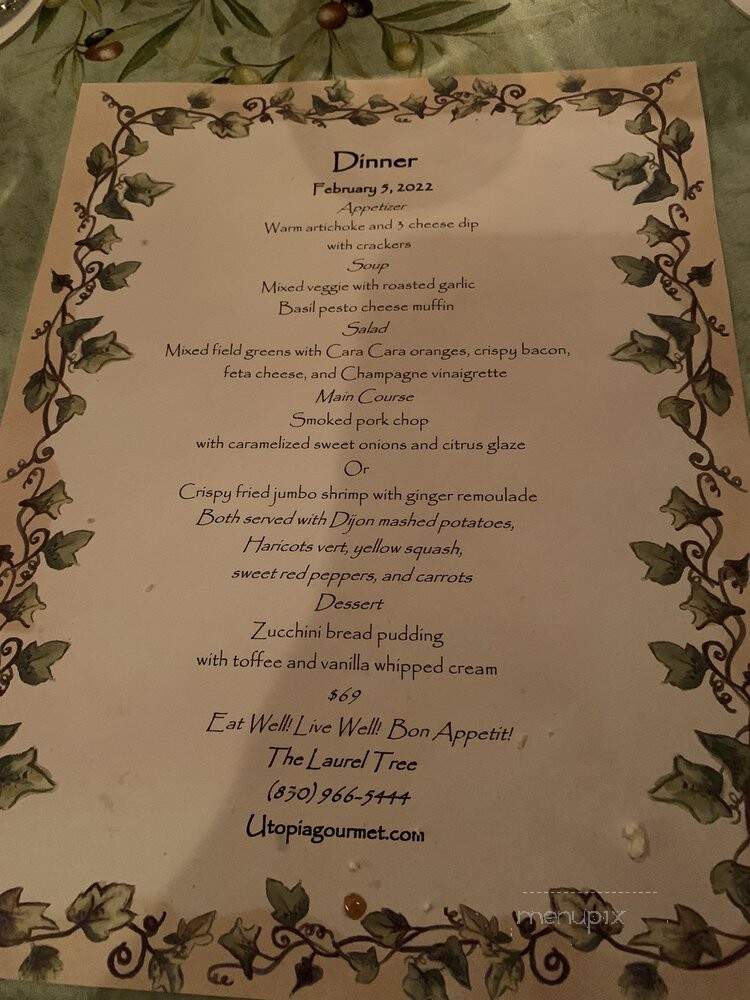 Dinner
February 5, 2022
Appetizer
Warm artichoke and 3 cheese dip
with crackers
Soup
Mixed veggie with roasted garlic
Basil pesto cheese muffin
Salad
Mixed field greens with Cara Cara oranges, crispy bacon,
feta cheese, and Champagne vinaigrette
Main Course
Smoked pork chop
with caramelized sweet onions and citrus glaze
Or
Crispy fried jumbo shrimp with ginger remoulade
Both served with Dijon mashed potatoes,
Haricots vert, yellow squash,
sweet red peppers, and carrots
Dessert
Zucchini bread pudding
with toffee and vanilla whipped cream
$69
Eat Well! Live Well! Bon Appetit!
The Laurel Tree
(830) 966-5444
Utopiagourmet.com
menupix